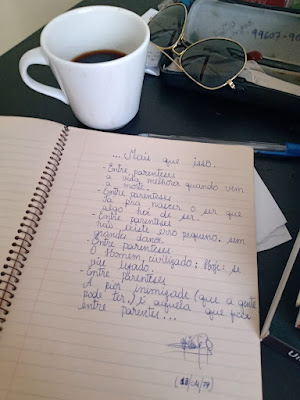 99607-90
... Mais que isso.
- Entre parenteses
a vida melhora quando vem
a morte.
- Entre parenteses
Tá pra nascer o ser que
algo há de ser.
- Entre parenteses
não existe erro pequeno, um
grande sanar.
- Entre parenteses
O Homem, civilizado; Hoje: se
viu lesado.
- Entre parenteses
A pior inimizade (que a gente
pode ter) é aquela que pari
entre parentes...
(18/04/79)